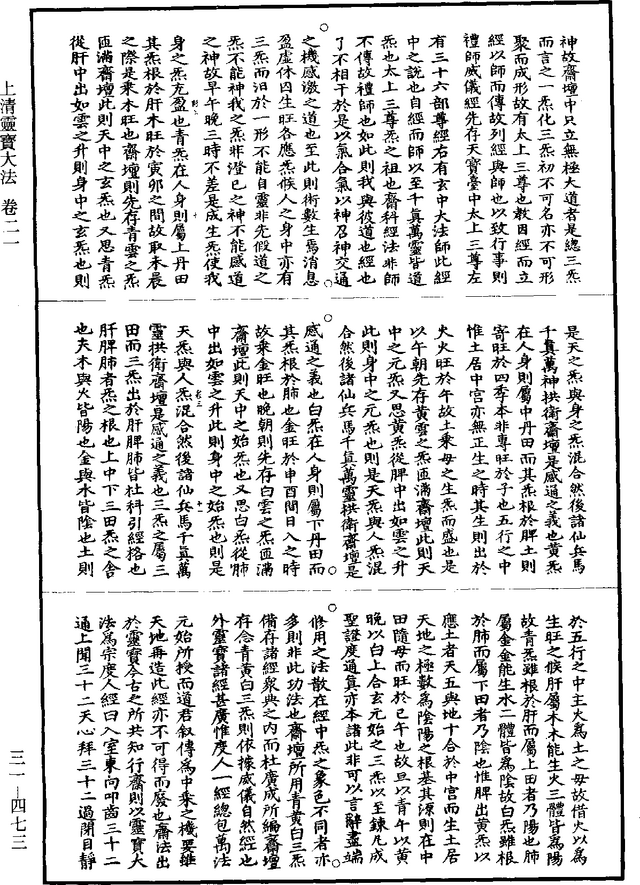 上清靈寶大法 卷二一
三一—四七三
神故齋壇中只立無極大道者是總三炁
而言之一炁化三炁初不可名亦不可形
聚而成形故有太上三尊也教因經而立
經以師而傳故列經與師也以致行事則
禮師威儀經先存天寶臺中太上三尊左
有三十六部尊經右有玄中大法師此經
中之說也自經而師以至千真萬靈皆道
炁也太上三尊炁之祖也齋科經法非師
不傳故禮師也如此則我與彼道也經也
了不相干於是以氣合氣以神召神交通
之機感激之道也至此則術數生焉消息
盈虛休囚生旺各應炁候人之身中亦有
三炁而汩於一形不能自靈非先假道之
炁不能神我之炁非澄已之神不能感道
之神故早午晚三時不差是成生炁使我
身之炁充盈也青炁在人身則屬上丹田
其炁根於肝木旺於寅卯之間故取本晨
之際是乘本旺也齋壇則先存青雲之炁
匝滿齋壇此則天中之玄炁也又思青炁
從肝中出如雲之升則身中之玄炁也則
是天之炁與身之炁混合然後諸仙兵馬
千真萬神拱衛齋壇是感通之義也黃炁
在人身則屬中丹田而其炁根於脾土則
寄旺於四季本非專旺於子也五行之中
惟土居中宮亦無正生之時其生則出於
火火旺於午故土乘母之生炁而盛也是
以午朝先存黃雲之炁匝滿齋壇此則天
中之元炁又思黃炁從脾中出如雲之升
此則身中之元炁也則是天炁與人炁混
合然後諸仙兵馬千真萬靈拱衛齋壇是
感通之義也白炁在人身則屬下丹田而
其炁根於肺也金旺於申酉間日入之時
故乘金旺也晚朝則先存白雲之炁匝滿
齋壇此則天中之始炁也又思白炁從肺
中出如雲之升此則身中之始炁也則是
天炁與人炁混合然後諸仙兵馬千真萬
靈拱衛齋壇是感通之義也三炁之屬三
田而三炁出於肝脾肺皆杜科引經格也
肝脾肺者炁之根也上中下三田炁之舍
也夫木與火皆陽也金與水皆陰也土則
於五行之中主火為土之母故借火以為
生旺之候肝屬木木能生火三體皆為陽
故青炁雖根於肝而屬上田者乃陽也肺
屬金金能生水二體皆為陰故白炁雖根
於肺而屬下田者乃陰也惟脾出黃炁以
應土者天五與地十合於中宮而生土居
天地之極數為陰陽之根基其源則在中
田隨母而旺於巳午也故旦以青午以黃
晚以白上合玄元始之三炁以至鍊凡成
聖證度通真亦本諸此非可以言辭盡端
修用之法散在經中炁之象色不同者亦
多則非此功法也齋壇所用青黃白三炁
備存諸經眾典之內而杜廣成所編齋壇
存念青黃白三炁則依據威儀自然經也
外靈寶諸經甚廣惟度人一經總包萬法
元始所授而道君叙傳為中乘之機要雖
天地再造此經亦不可得而廢也齋法出
於靈寶今古之所共知行齋則以靈寶大
法為宗度人經曰入室東向叩齒三十二
通上聞三十二天心拜三十二過閉目靜